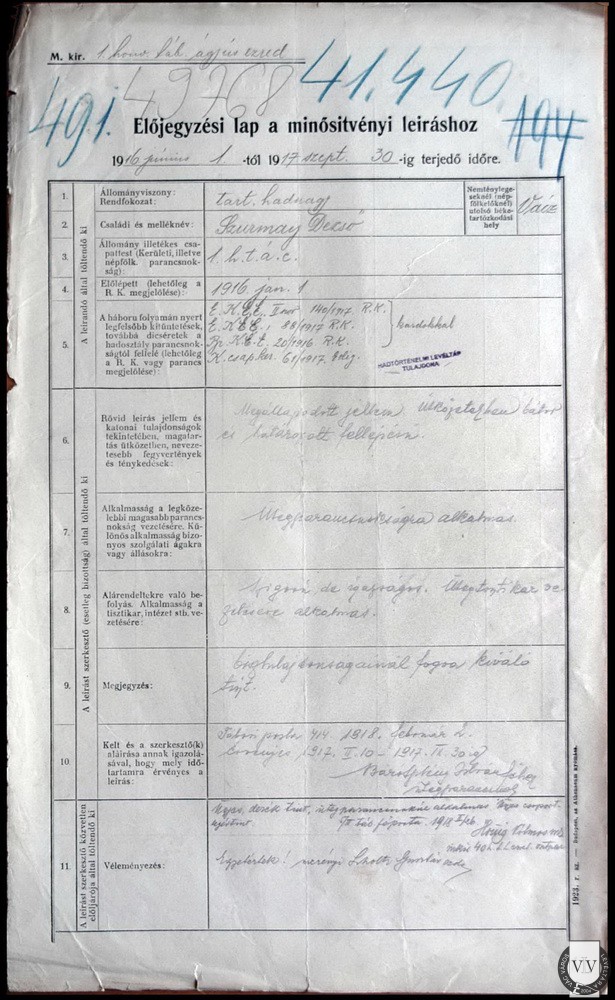 M. kir. 1 honv. táb. ágyús ezred
49768
41.440.
491.
194
Előjegyzési lap a minősitvényi leiráshoz
1916 június 1. -től 1917 szept. 30-ig terjedő időre.
A leirandó által töltendő ki
1. Állományviszony:
Rendfokozat:
tart. hadnagy
Nemténylege-
seknél (nép-
fölkelőknél)
utolsó béke-
tartózkodási
hely
Vácz
2. Családi és melléknév:
Szurmay Dezső
3. Állomány illetékes csa-
pattest (Kerületi, illetve
népfölk. parancsnok-
ság):
1. h. t. á. e.
4. Előlépett (lehetőleg a
R. K. megjelölése):
1916. jan. 1
5. A háboru folyamán nyert
legfelsőbb kitüntetések,
továbbá dicséretek a
hadosztály parancsnok-
ságtól felfelé (lehetőleg
a R. K. vagy parancs
megjelölése):
140/1917 R. K.
88/1917 R. K.
20/1916 R. K.
K. csap. ker. 61/1917
kardokkal
HADTÖRTÉNELMI LEVÉLTÁR
TULAJDONA
A leirást szerkesztő (esetleg bizottság) által töltendő ki
6. Rövid leirás jellem és
katonai tulajdonságok
tekintetében, magatar-
tás ütközetben, neveze-
tesebb fegyvertények
és ténykedések:
Megállapodott jellem. Ütközetekben bátor
és határozott fellépésű.
7. Alkalmasság a legköze-
lebbi magasabb parancs-
nokság vezetésére. Kü-
lönös alkalmasság bizo-
nyos szolgálati ágakra
vagy állásokra:
Ütegparancsnokságra alkalmas.
8. Alárendeltekre való be-
folyás. Alkalmasság a
tisztikar, intézet stb. ve-
zetésére:
Szigorú de igazságos. Ütegtisztikar ve-
zetésére alkalmas.
9. Megjegyzés:
fogva kiváló
tiszt.
10. Kelt és a szerkesztő(k)
aláirása annak igazolá-
sával, hogy mely idő-
tartamra érvényes a
leirás:
Tábori posta 414. 1918. február 2.
Érvényes 1917. II. 10 - 1917. IX. 30-ig
ütegparancsnok
A leirást szerkesztő közvetlen
elöljárója által töltendő ki
11. Véleményezés:
alkalmas
Egyetértek!
1923. r. sz. — Budapest, az Athenaeum nyomása.
VÁC VÁROS LEVÉLTÁRA